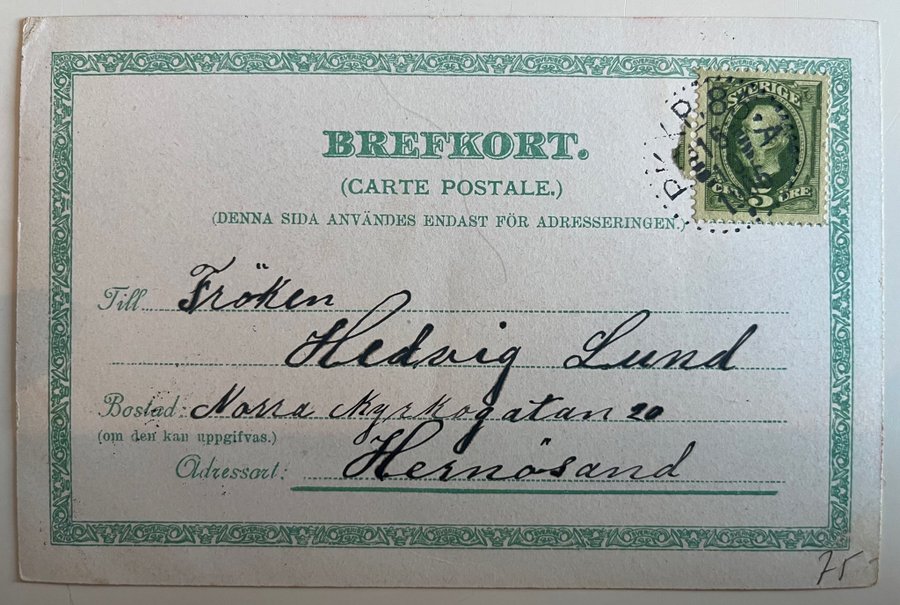 BREFKORT.
(CARTE POSTALE.)
(DENNA SIDA ANVÄNDES ENDAST FÖR ADRESSERINGEN.)
SVERIGE
5 ÖRE
Till Fröken
Hedvig Lund
Bostad: Norra Kyrkogatan 20
(om den kan uppgifvas.)
Adressort: Hernösand
75-